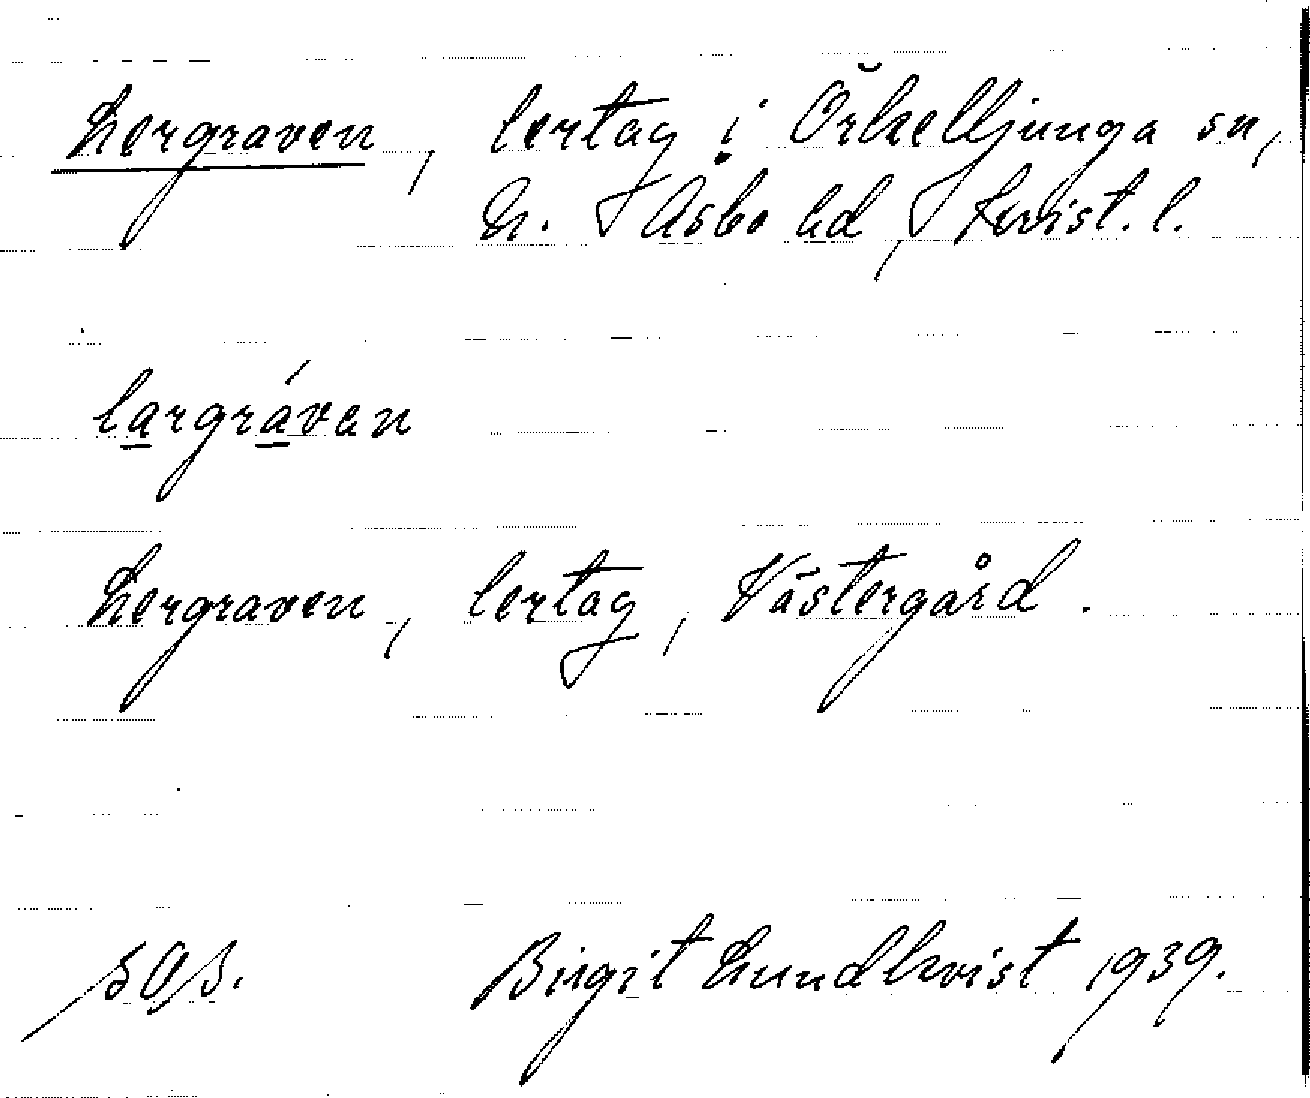 Lergraven, lertag i Örkelljunga sn,
N. Åsbo hd, Krist. l.
largráven
Lergraven, lertag, Västergård.
Birgit Lundkvist 1939.